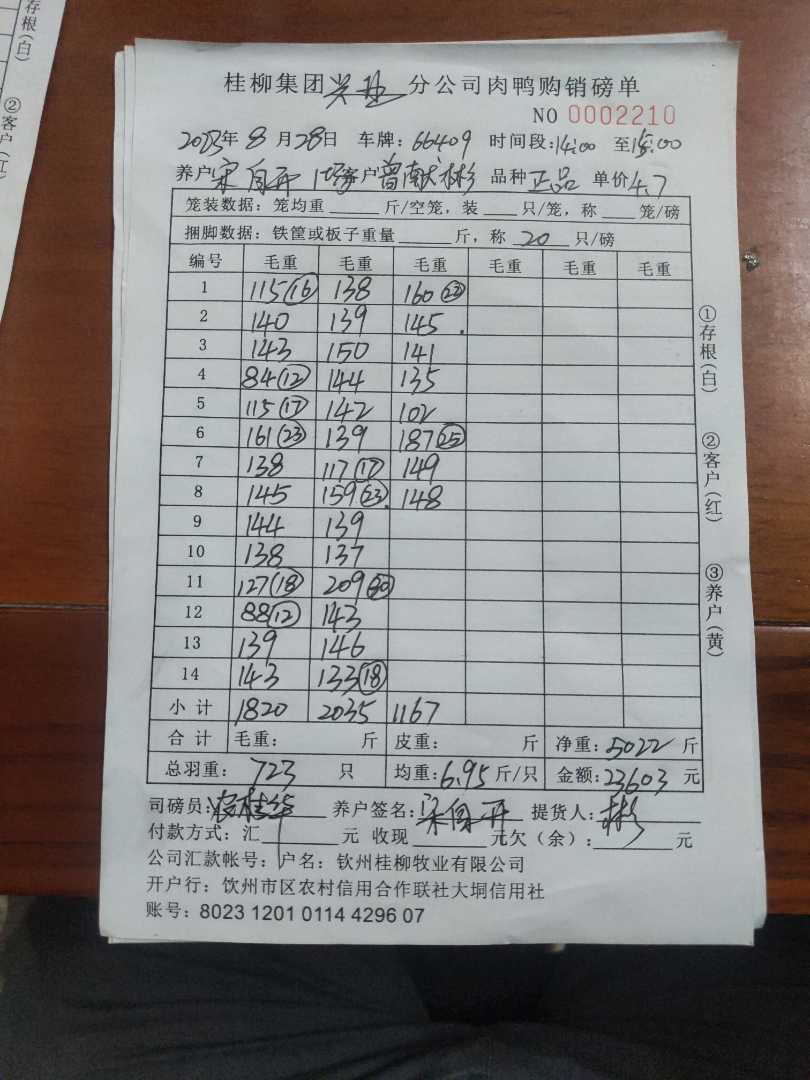 存根(白)
②客户(红
桂柳集团 分公司肉鸭购销磅单
NO 0002210
2023年8月28日 车牌:66409 时间段:14:00 至15:00
养户宋自开 1场 客户曾献彬 品种正品 单价4.7
笼装数据:笼均重____斤/空笼,装___只/笼,称___笼/磅
捆脚数据:铁筐或板子重量____斤,称 20 只/磅
编号 毛重 毛重 毛重 毛重 毛重 毛重
1 115(16) 138 160(22)
2 140 139 145.
3 143 150 141
4 84(12) 144 135
5 115(17) 142 102
6 161(23) 139 187(25)
7 138 117(17) 149
8 145 159(23) 148
9 144 139
10 138 137
11 127(18) 209(30)
12 88(12) 143
13 139 146
14 143 133(18)
小计 1820 2035 1167
合计 毛重: 斤 皮重: 斤 净重:5022斤
总羽重:723 只 均重:6.95斤/只 金额:23603元
司磅员: 养户签名:宋自开 提货人:彬
付款方式:汇____元 收现____元欠(余):____元
公司汇款帐号:户名:钦州桂柳牧业有限公司
开户行:饮州市区农村信用合作联社大垌信用社
账号:8023 1201 0114 4296 07
①存根(白)
②客户(红)
③养户(黄)